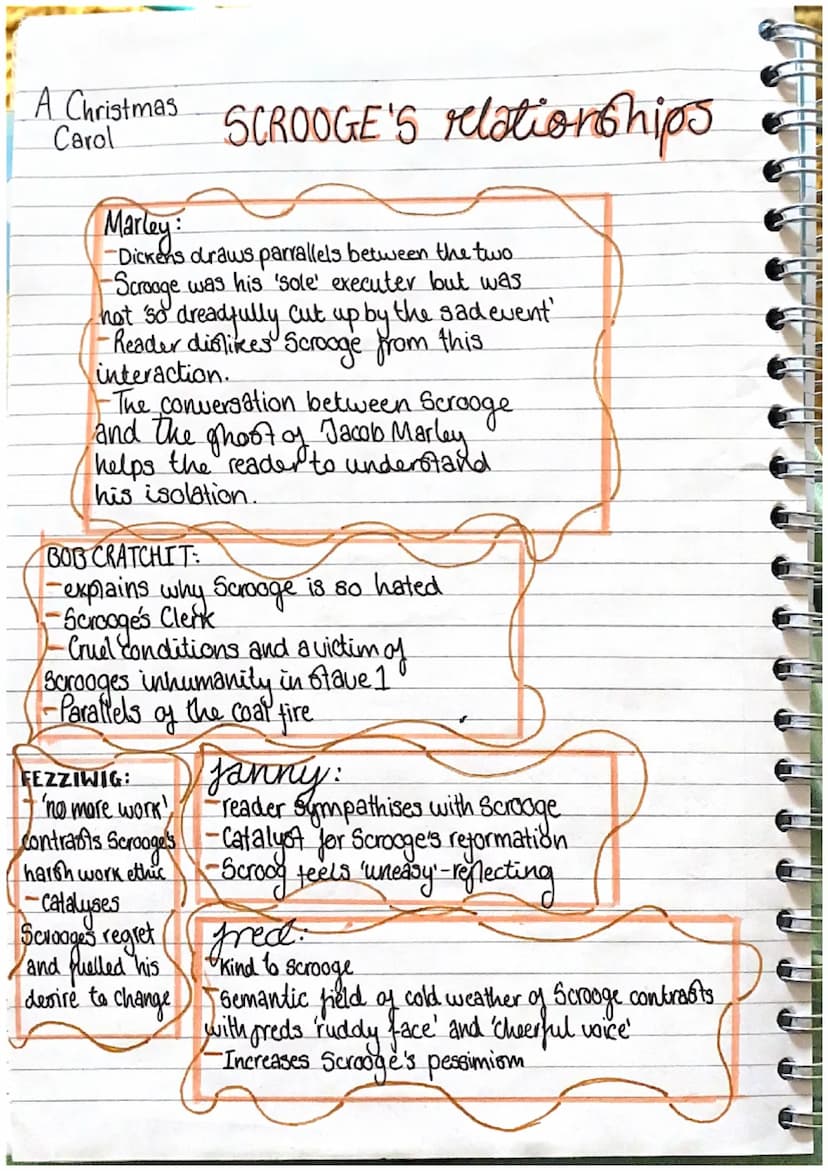 A Christmas
Carol
SCROOGE'S relationships
Marley:
-Dickens draws parrallels between the two
-Scrooge was his 'sole' executer but was
not 'so dreadfully cut up by the sad event'
-Reader dislikes Scrooge from this
interaction.
-The conversation between Scrooge
and the ghost of Jacob Marley
helps the reader to understand
his isolation.
BOB CRATCHIT:
-explains why Scrooge is so hated
-Scrooge's Clerk
-Cruel conditions and a victim of
Scrooges inhumanity in stave 1
-Parallels of the coal fire
FEZZIWIG:
-'no more work'
contrasts Scrooge's
harsh work ethic
-catalyses
Scrooge's regret
and fuelled his
desire to change
fanny:
-reader sympathises with Scrooge
-Catalyst for Scrooge's reformation
-Scroog feels 'uneasy'-reflecting
fred:
-Kind to Scrooge
-Semantic field of cold weather of Scrooge contrasts
with freds 'ruddy face' and 'cheerful voice'
-Increases Scrooge's pessimism